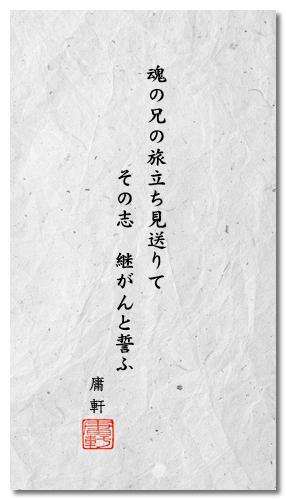 魂の兄の旅立ち見送りて
その志　継がんと誓ふ
庸軒
庸軒